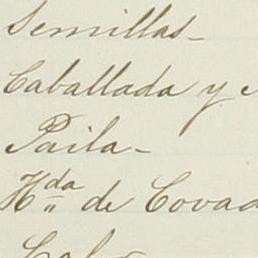 Semillas_
Caballada y
Paila_
Hda de